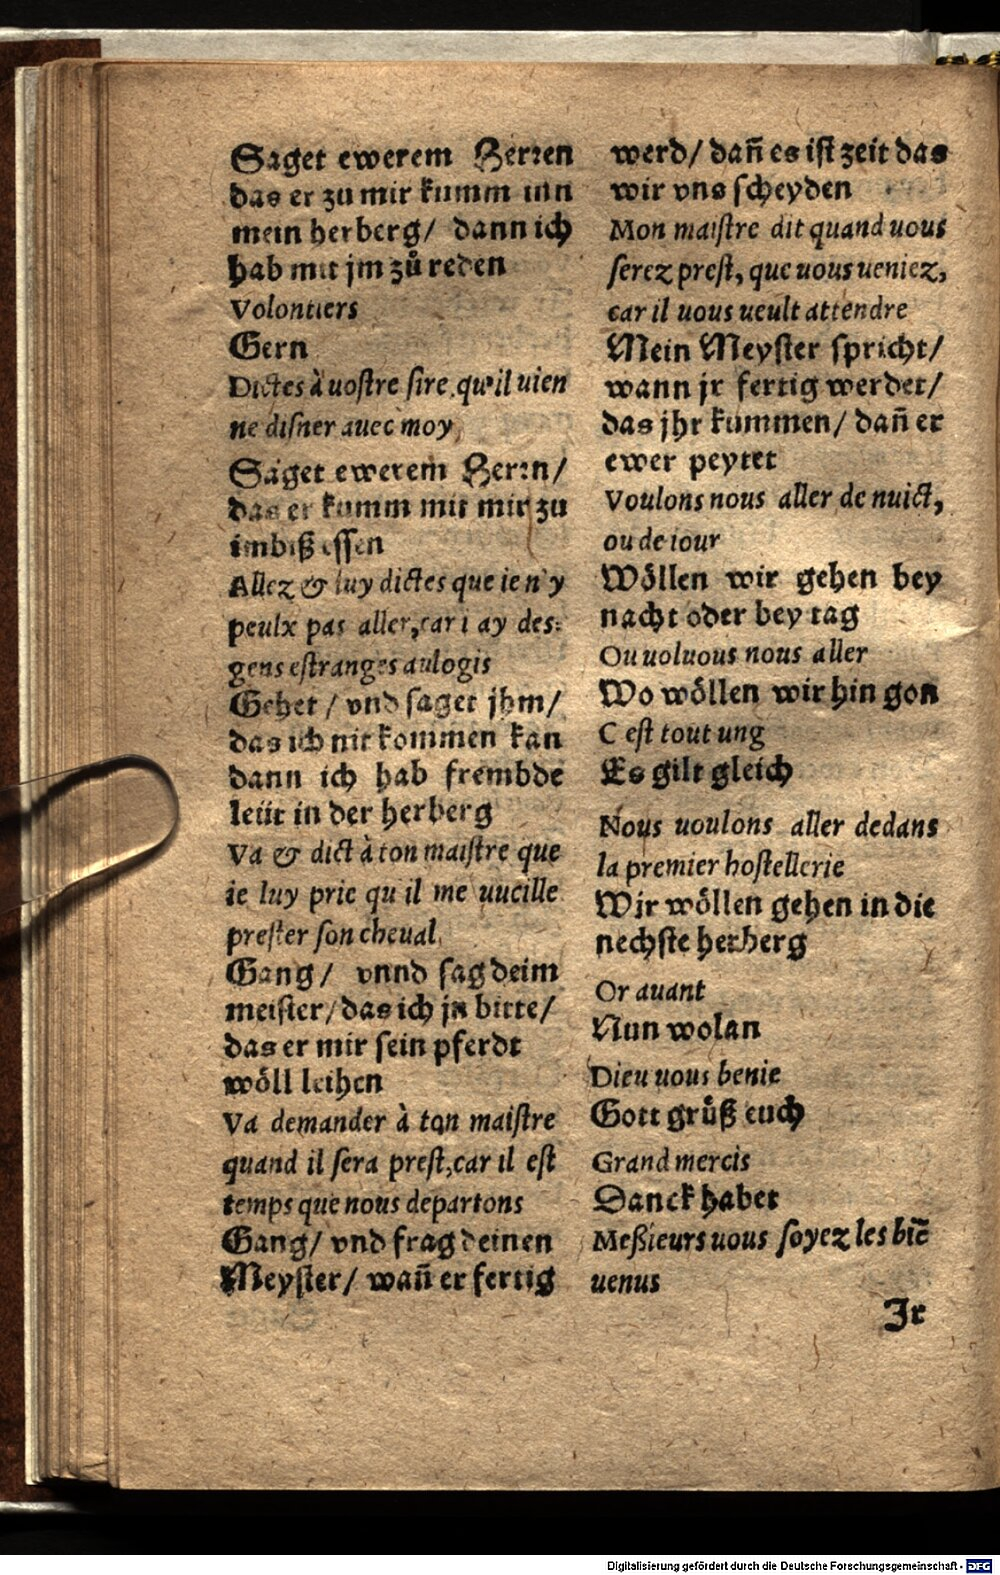 Saget ewerem Herren
das er zu mir kumm inn
mein herberg/ dann ich
hab mit jm zů reden
Volontiers
Gern
Dictes à uoſtre ſire, qu'il uien
ne diſner auec moy
Saget ewerem Herrn/
das er kumm mit mir zu
imbiß eſſen
Allez & luy dictes que ie n'y
peulx pas aller, car i ay des
gens eſtranges aulogis
Gehet / vnd ſaget jhm/
das ich nit kommen kan
dann ich hab frembde
leüt in der herberg
Va & dict à ton maiſtre que
ie luy prie qu il me uueille
preſter ſon cheual
Gang/ vnnd ſag deim
meiſter/ das ich jn bitte/
das er mir ſein pferdt
wöll leihen
Va demander à ton maiſtre
quand il ſera preſt, car il eſt
temps que nous departons
Gang/ vnd frag deinen
Meyſter/ wañ er fertig
werd/ dañ es iſt zeit das
wir vns ſcheyden
Mon maiſtre dit quand uous
ſerez preſt, que uous ueniez,
car il uous ueult attendre
Mein Meyſter ſpricht/
wann jr fertig werdet/
das jhr kummen/ dañ er
ewer peytet
Voulons nous aller de nuict,
ou de iour
Wöllen wir gehen bey
nacht oder bey tag
Ou uoluous nous aller
Wo wöllen wir hin gon
C eſt tout ung
Es gilt gleich
Nous uoulons aller dedans
la premier hoſtellerie
Wir wöllen gehen in die
nechſte herberg
Or auant
Nun wolan
Dieu uous benie
Gott grůß euch
Grand mercis
Danck habet
Meßieurs uous ſoyez les biē
uenus
Jr
Digitalisierung gefördert durch die Deutsche Forschungsgemeinschaft - DFG